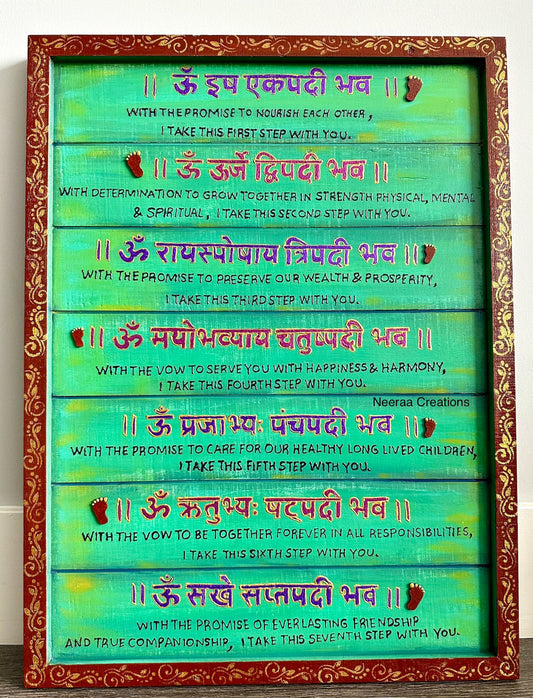 || ॐ इप एकपदी भव ||
WITH THE PROMISE TO NOURISH EACH OTHER,
I TAKE THIS FIRST STEP WITH YOU.
|| ॐ ऊर्जे द्विपदी भव ||
WITH DETERMINATION TO GROW TOGETHER IN STRENGTH PHYSICAL, MENTAL
& SPIRITUAL, I TAKE THIS SECOND STEP WITH YOU.
|| ॐ रायस्पोषाय त्रिपदी भव ||
WITH THE PROMISE TO PRESERVE OUR WEALTH & PROSPERITY,
I TAKE THIS THIRD STEP WITH YOU.
|| ॐ मयोभव्याय चतुष्पदी भव ||
WITH THE VOW TO SERVE YOU WITH HAPPINESS & HARMONY,
I TAKE THIS FOURTH STEP WITH YOU.
Neeraa Creations
|| ॐ प्रजाभ्यः पंचपदी भव ||
WITH THE PROMISE TO CARE FOR OUR HEALTHY LONG LIVED CHILDREN,
I TAKE THIS FIFTH STEP WITH YOU.
|| ॐ ऋतुभ्यः षट्पदी भव ||
WITH THE VOW TO BE TOGETHER FOREVER IN ALL RESPONSIBILITIES,
I TAKE THIS SIXTH STEP WITH YOU.
|| ॐ सखे सप्तपदी भव ||
WITH THE PROMISE OF EVERLASTING FRIENDSHIP
AND TRUE COMPANIONSHIP, I TAKE THIS SEVENTH STEP WITH YOU.